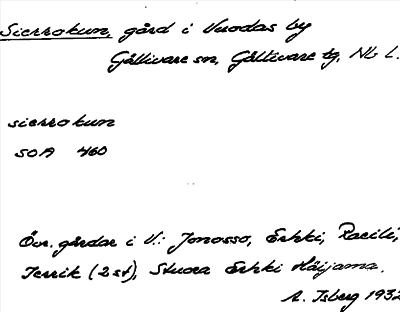 Sierrokun, gård i Vuodas by
Gällivare sn, Gällivare tg, Nb L.
sierrokun
SOA 460
Övr. gårdar i V.: Jonosso, Erkki,
Jerrik (2 st), Stuora Erkki Häijama.
A. Isberg 1932